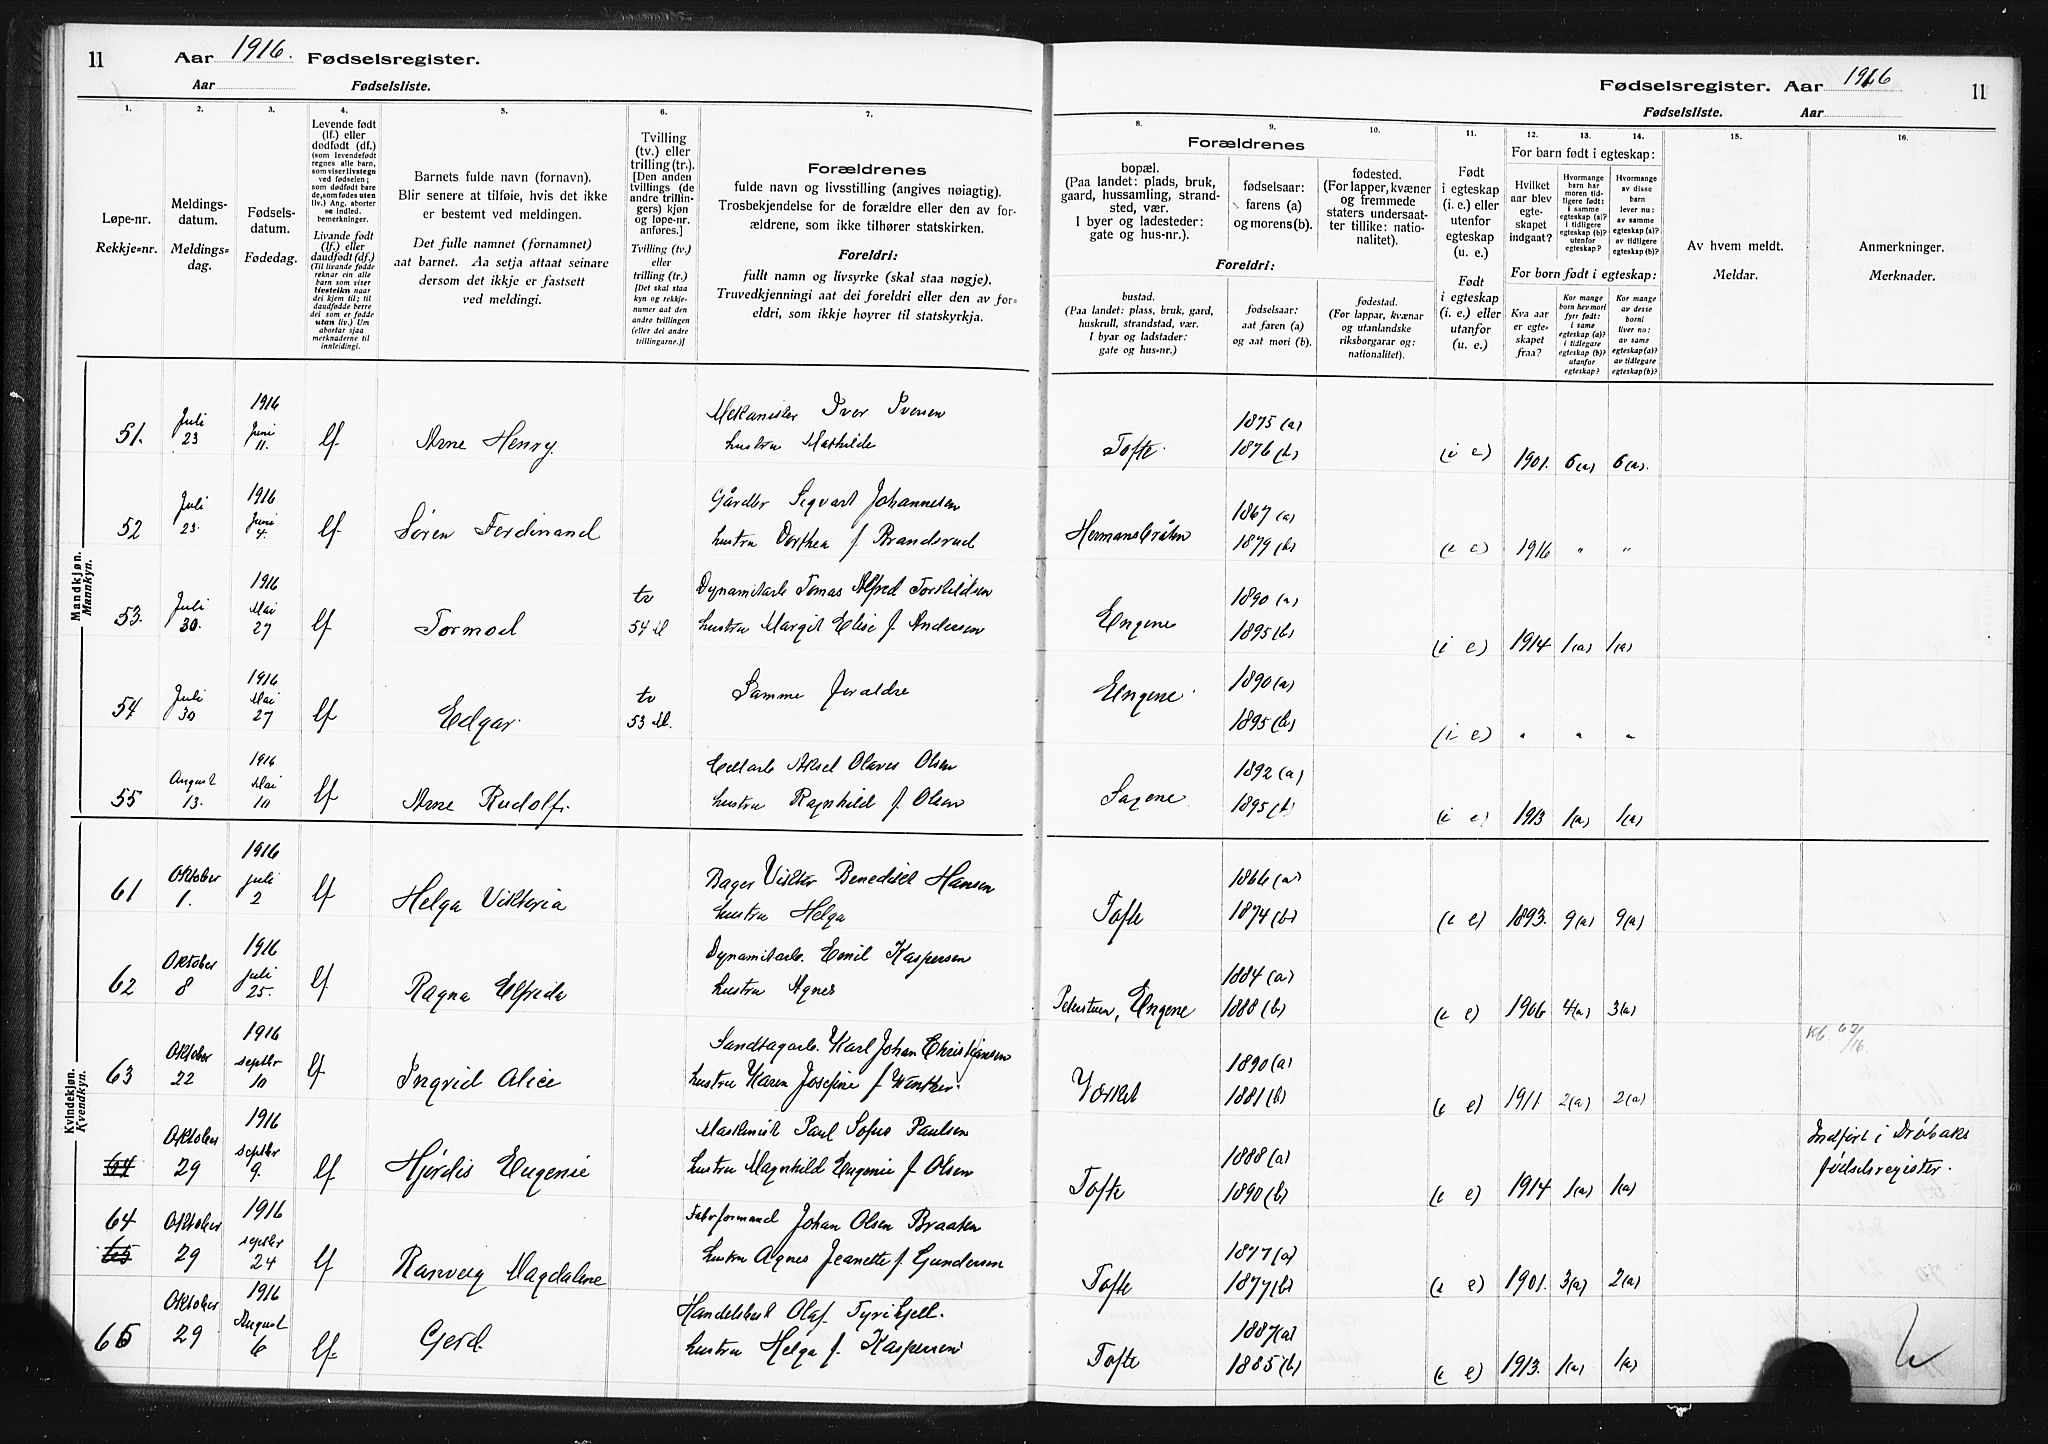 11 Aar 1916. Fødselsregister.
Aar Fødselsliste.
1. 2. 3. 4. 5. 6. 7.
Løpe-nr.
Rekkje-nr.
Meldings-
datum.
Meldings-
dag.
Fødsels-
datum.
Fødedag.
Levende født
(lf.) eller
dødfødt (df.)
(som levendefødt
regnes alle barn,
som viser livstegn
ved fødselen;
som dødfødt bare
de, som fødes uten
liv.) Ang. aborter
se indled.
bemerkninger.
Livande født
(lf.) eller
daudfødt (df.)
(Til livande fødde
reknar ein alle
born som viser
livsteikn naar
dei kjem til; til
daudfødde berre
dei som er fødde
utan liv.) Um
abortar sjaa
merknaderne til
innleidingi.
Barnets fulde navn (fornavn).
Blir senere at tilføie, hvis det ikke
er bestemt ved meldingen.
Det fulle namnet (fornamnet)
aat barnet. Aa setja attaat seinare
dersom det ikkje er fastsett
ved meldingi.
Tvilling
(tv.) eller
trilling (tr.).
[Den anden
tvillings (de
andre trillin-
gers) kjøn
og løpe-nr.
anføres.]
Tvilling (tv.)
eller
trilling (tr.)
[Det skal staa
kyn og rekkje-
numer aat den
andre tvillingen
(eller dei andre
trillingarne.)]
Forældrenes
fulde navn og livsstilling (angives nøiagtig).
Trosbekjendelse for de forældre eller den av for-
ældrene, som ikke tilhører statskirken.
Foreldri:
fullt namn og livsyrke (skal staa nøgje).
Truvedkjenningi aat dei foreldri eller den av for-
eldri, som ikkje høyrer til statskyrkja.
Mandkjøn.
Mannkyn.
51. Juli 23 1916 Juni 11. lf. Arne Henry. Mekaniker Iver Iversen
hustru Mathilde
52 Juli 23. 1916 Juni 4. lf. Søren Ferdinand Gårdbr Sigvart Johannesen
hustru Dorthea f. Brandsrud
53. Juli 30. 1916 Mai 27 lf Tormod tv 54 M Dynamitarb Tomas Alfred Torkildsen
hustru Margit Elise f Andersen
54 Juli 30 1916 Mai 27 lf Edgar. tv 53 M. Samme foraldre
55 August 13. 1916 Mai 10 lf Arne Rudolf. Cellarb Aksel Olaves Olsen
hustru Ragnhild f. Olsen
Kvindekjøn.
Kvendkyn.
61 Oktober 1. 1916 juli 2 lf Helga Viktoria Bager Viktor Benedikt Hansen
hustru Helga
62 Oktober 8 1916 juli 25. lf Ragna Elfrida Dynamitarb. Emil Kaspersen
hustru Agnes
63 Oktober 22 1916 septbr 10 lf. Ingrid Alice Sandtagarb. Karl Johan Christiansen
hustru Karen Josefine f Winther.
64 Oktober 29 1916 septbr 9. lf Hjørdis Eugenie Maskinist Paul Sofus Paulsen
hustru Magnhild Eugenie f. Olsen
64
65 Oktober 29 1916 septbr 24 lf Ranveig Magdalene Fabrformand Johan Olsen Braaten
hustru Agnes Jeanette f. Gundersen
65 Oktober 29 1916 August 6 lf. Gerd. Handelsbest Olaf Tyrihjell.
hustru Helga f. Kaspersen
Fødselsregister. Aar 1916 11
Fødselsliste. Aar
8. 9. 10. 11. 12. 13. 14. 15. 16.
Forældrenes
bopæl.
(Paa landet: plads, bruk,
gaard, hussamling, strand-
sted, vær.
I byer og ladesteder:
gate og hus-nr.).
fødselsaar:
farens (a)
og morens (b).
fødested.
(For lapper, kvæner
og fremmede
staters undersaat-
ter tillike: natio-
nalitet).
Foreldri:
bustad.
(Paa landet: plass, bruk, gard,
huskrull, strandstad, vær.
I byar og ladstader:
gate og hus-nr.)
fødselsaar:
aat faren (a)
og aat mori (b).
fødestad.
(For lappar, kvænar
og utanlandske
riksborgarar og:
nationalitet).
Født
i egteskap
(i. e.) eller
utenfor
egteskap
(u. e.)
Født
i egteskap
(i. e.) eller
utanfor
(u. e.)
For barn født i egteskap:
Hvilket
aar blev
egte-
skapet
indgaat?
Hvormange
barn har
moren tid-
ligere født:
i samme
egteskap (a)?
i tidligere
egteskap (b)?
utenfor
egteskap?
Hvormange
av disse
barn
lever nu:
av samme
egteskap (a)?
av tidligere
egteskap (b)?
For born født i egteskap:
Kva aar
er egte-
skapet
fraa?
Kor mange
born hev mori
fyrr født:
i same
egteskap (a)?
i tidlegare
egteskap (b)?
utanfor
egteskap?
Kor mange
av desse
borni
liver no:
av same
egteskap (a)?
av tidlegare
egteskap (b)?
Av hvem meldt.
Meldar.
Anmerkninger.
Merknader.
Tofte. 1875 (a)
1876 (b) (i e) 1901. 6 (a) 6 (a).
Hermansbråten 1867 (a)
1879 (b) (i e) 1916 " "
Engene 1890 (a)
1895 (b) (i e) 1914 1 (a) 1 (a)
Engene 1890 (a)
1895 (b) (i e) " " "
Sagene 1892 (a)
1895 (b) (i e) 1913 1 (a) 1 (a)
Tofte 1866 (a)
1874 (b) (i e) 1893. 9 (a) 9 (a)
Peterstuen, Engene 1884 (a)
1888 (b) (i e) 1906 4 (a) 3 (a)
Værket 1890 (a)
1881 (b) (i e) 1911 2 (a) 2 (a)
Tofte 1888 (a)
1890 (b) (i e) 1914 1 (a) 1 (a) Indført i Drøbaks
fødselsregister.
Tofte 1877 (a)
1877 (b) (i e) 1901. 3 (a) 2 (a)
Tofte 1887 (a)
1885 (b) (i e) 1913. 1 (a) 1 (a)